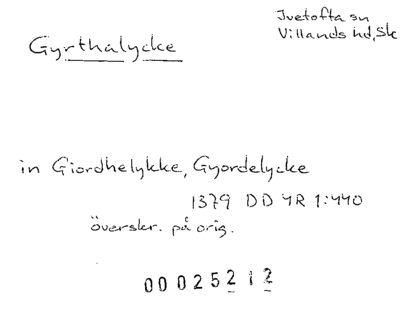 Ivetofta sn
Villands hd, Sk
Gyrthalycke
in Giordhelykke, Gyordelycke
1379 DD 4R 1:440
överskr. på orig.
00025212